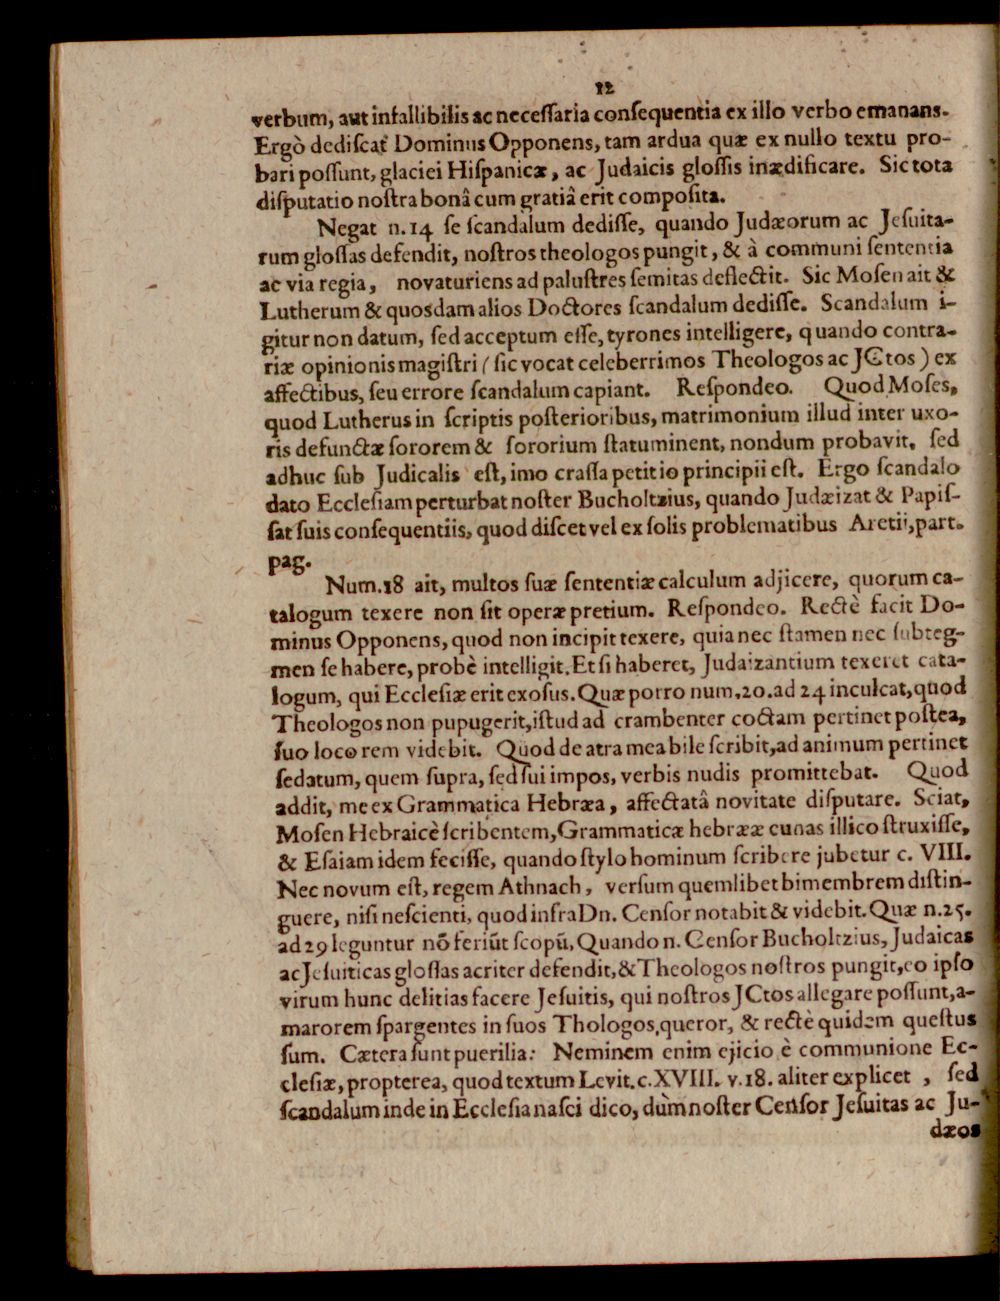 12
verbum, aut infallibilis ac neceſſaria conſequentia ex illo verbo emanans.
Ergò dediſcat Dominus Opponens, tam ardua quæ ex nullo textu pro-
bari poſſunt, glaciei Hiſpanicæ, ac Judaicis gloſſis inædificare. Sic tota
diſputatio noſtra bonâ cum gratiâ erit compoſita.
Negat n. 14 ſe ſcandalum dediſſe, quando Judæorum ac Jeſuita-
rum gloſſas defendit, noſtros theologos pungit, & à communi ſententia
ac via regia, novaturiens ad paluſtres ſemitas deflectit. Sic Moſen ait &
Lutherum & quosdam alios Doctores ſcandalum dediſſe. Scandalum i-
gitur non datum, ſed acceptum eſſe, tyrones intelligere, quando contra-
riæ opinionis magiſtri (ſic vocat celeberrimos Theologos ac JCtos) ex
affectibus, ſeu errore ſcandalum capiant. Reſpondeo. Quod Moſes,
quod Lutherus in ſcriptis poſterioribus, matrimonium illud inter uxo-
ris defunctæ ſororem & ſororium ſtatuminent, nondum probavit, ſed
adhuc ſub Judicalis eſt, imo craſſa petitio principii eſt. Ergo ſcandalo
dato Eccleſiam perturbat noſter Bucholtzius, quando Judæizat & Papiſ-
ſat ſuis conſequentiis, quod diſcet vel ex ſolis problematibus Aretii, part.
pag.
Num. 18 ait, multos ſuæ ſententiæ calculum adjicere, quorum ca-
talogum texere non ſit operæ pretium. Reſpondeo. Rectè facit Do-
minus Opponens, quod non incipit texere, quia nec ſtamen nec ſubteg-
men ſe habere, probè intelligit. Et ſi haberet, Judaizantium texeret cata-
logum, qui Eccleſiæ erit exoſus. Quæ porro num. 20. ad 24 inculcat, quod
Theologos non pupugerit, iſtud ad crambenter coctam pertinet poſtea,
ſuo loco rem videbit. Quod de atra mea bile ſcribit, ad animum pertinet
ſedatum, quem ſupra, ſed ſui impos, verbis nudis promittebat. Quod
addit, me ex Grammatica Hebræa, affectatâ novitate diſputare. Sciat,
Moſen Hebraicè ſcribentem, Grammaticæ hebrææ cunas illico ſtruxiſſe,
& Eſaiam idem feciſſe, quando ſtylo hominum ſcribere jubetur c. VIII.
Nec novum eſt, regem Athnach, verſum quemlibet bimembrem diſtin-
guere, niſi neſcienti, quod infra Dn. Cenſor notabit & videbit. Quæ n. 25.
ad 29 leguntur nō feriūt ſcopū, Quando n. Cenſor Bucholtzius, Judaicas
ac Jeſuiticas gloſſas acriter defendit, & Theologos noſtros pungit, eo ipſo
virum hunc delitias facere Jeſuitis, qui noſtros JCtos allegare poſſunt, a-
marorem ſpargentes in ſuos Thologos, queror, & rectè quidem queſtus
ſum. Cætera ſunt puerilia: Neminem enim ejicio è communione Ec-
cleſiæ, propterea, quod textum Levit. c. XVIII. v. 18. aliter explicet, ſed
ſcandalum inde in Eccleſia naſci dico, dùm noſter Cenſor Jeſuitas ac Ju-
dæos